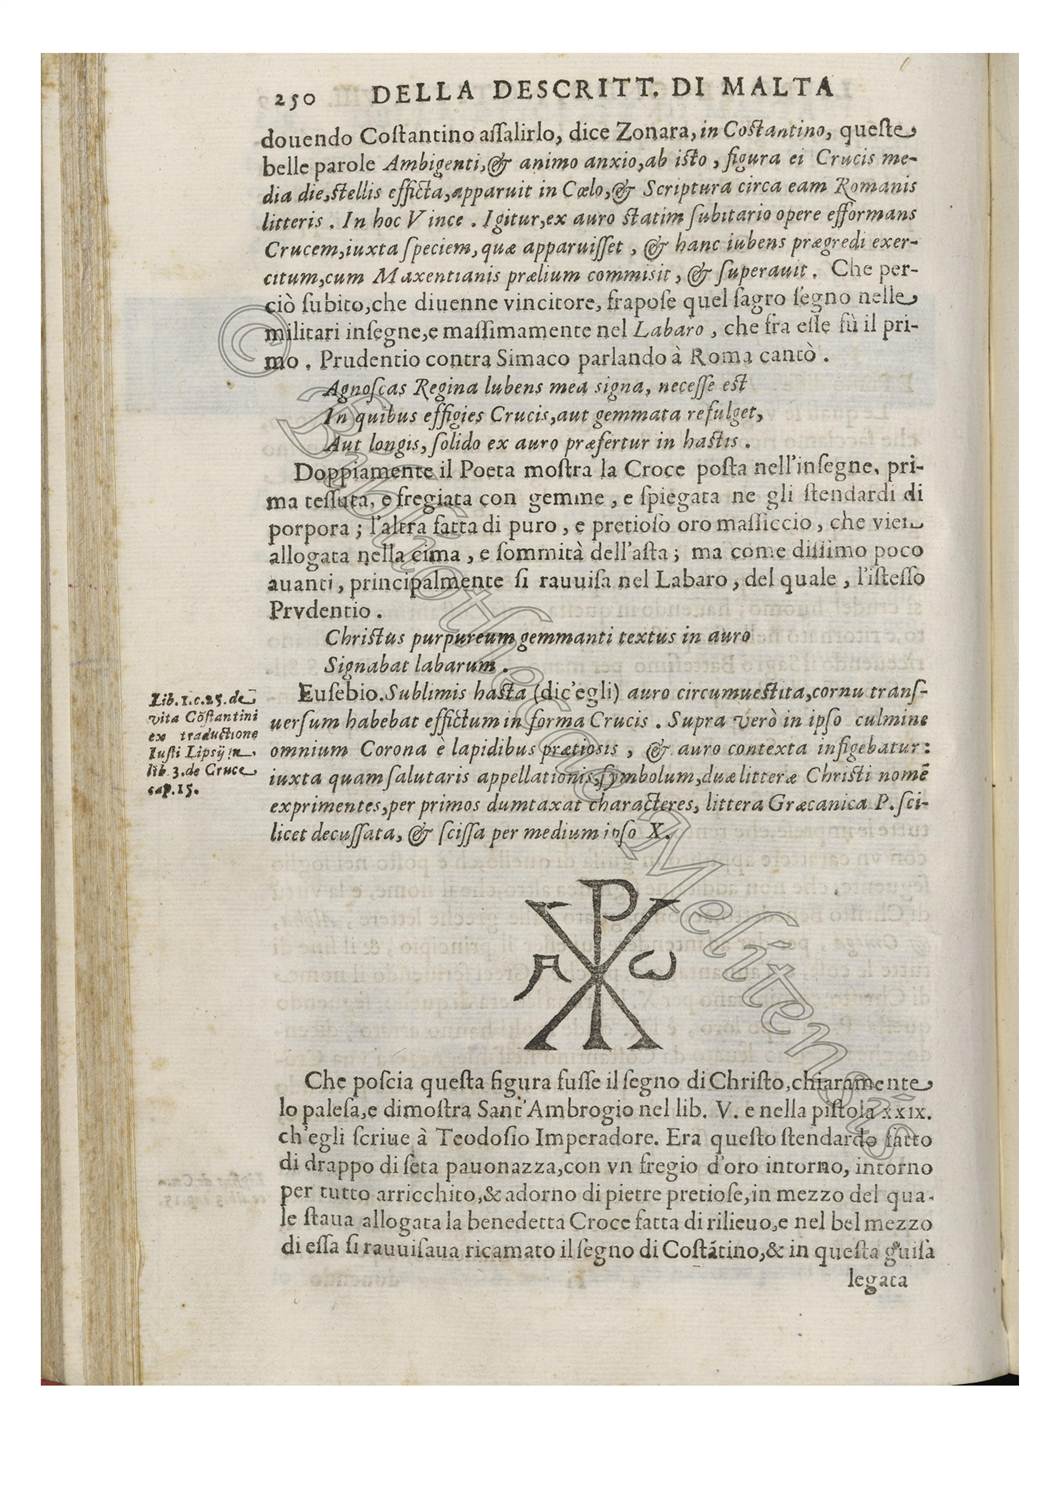 250 DELLA DESCRITT. DI MALTA
douendo Coſtantino aſſalirlo, dice Zonara, in Coſtantino, queſte
belle parole Ambigenti, & animo anxio, ab iſto, figura ei Crucis me-
dia die, ſtellis efficta, apparuit in Cœlo, & Scriptura circa eam Romanis
litteris. In hoc Vince. Igitur, ex auro ſtatim ſubitario opere efformans
Crucem, iuxta ſpeciem, quæ apparuiſſet, & hanc iubens prægredi exer-
citum, cum Maxentianis prælium commisit, & ſuperauit. Che per-
ciò ſubito, che diuenne vincitore, frapoſe quel ſagro ſegno nelle
militari inſegne, e maſſimamente nel Labaro, che fra eſſe fù il pri-
mo. Prudentio contra Simaco parlando à Roma cantò.
Agnoſcas Regina lubens mea signa, neceſſe eſt
In quibus effigies Crucis, aut gemmata refulget,
Aut longis, ſolido ex auro præfertur in haſtis.
Doppiamente il Poeta moſtra la Croce poſta nell'inſegne, pri-
ma teſſuta, e fregiata con gemme, e ſpiegata ne gli ſtendardi di
porpora; l'altra fatta di puro, e pretioſo oro maſſiccio, che vien
allogata nella cima, e ſommità dell'aſta; ma come diſſimo poco
auanti, principalmente ſi rauuiſa nel Labaro, del quale, l'iſteſſo
Prvdentio.
Chriſtus purpureum gemmanti textus in auro
Signabat labarum.
Euſebio. Sublimis haſta (dic'egli) auro circumueſtita, cornu tranſ-
uerſum habebat effictum in forma Crucis. Supra verò in ipſo culmine
omnium Corona è lapidibus prætiosis, & auro contexta infigebatur:
iuxta quam ſalutaris appellationis ſymbolum, duæ litteræ Chriſti nomē
exprimentes, per primos dumtaxat characteres, littera Græcanica P. ſci-
licet decuſſata, & ſciſſa per medium ipſo X.
Lib. 1. c. 25. de
vita Cōſtantini
ex traductione
Iuſti Lipsÿ in
lib. 3. de Cruce
cap. 15.
A P X ω
Che poſcia queſta figura fuſſe il ſegno di Chriſto, chiaramente
lo paleſa, e dimoſtra Sant'Ambrogio nel lib. V. e nella piſtola XXIX.
ch'egli ſcriue à Teodoſio Imperadore. Era queſto ſtendardo fatto
di drappo di ſeta pauonazza, con vn fregio d'oro intorno, intorno
per tutto arricchito, & adorno di pietre pretioſe, in mezzo del qua-
le ſtaua allogata la benedetta Croce fatta di rilieuo, e nel bel mezzo
di eſſa ſi rauuiſaua ricamato il ſegno di Coſtātino, & in queſta guiſa
legata
© Bibliotheca Melitensis